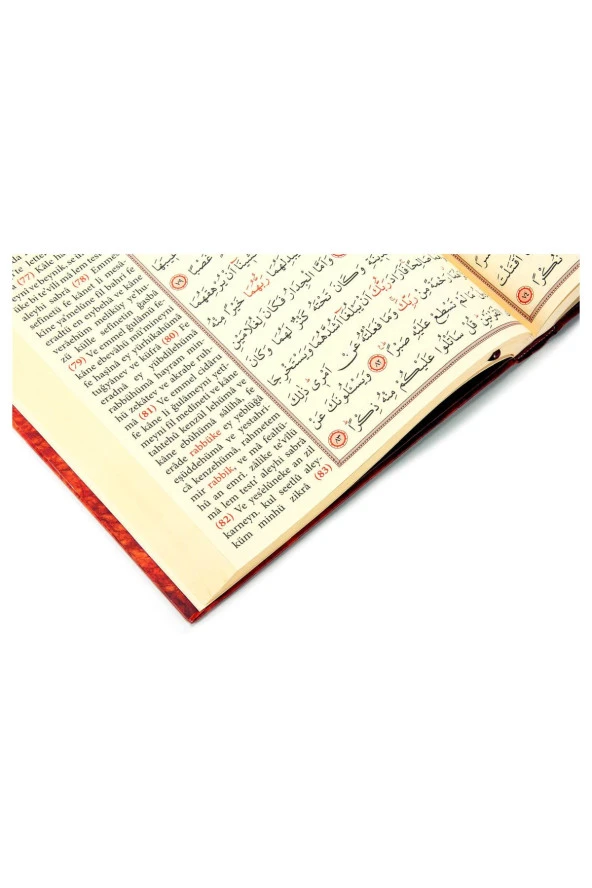 lettes
(77) Kâle hâ
eynî ve beynik, se ü
üke bi te'vîli mâ lem tes
aleyhi sabrâ (78) Emme
sefînetü fe kânet li mesâ-
kîne ya'melûne fil bahri fe
eradtü en eybehâ ve kâne
verâehüm meliküy ye'hu-
zü külle sefînetin ğasbâ
(79) Ve emmel ğulâmü fe-
kâne ebevâhü mü'mineyni
fe haşînâ ey yürhikahümâ
tuğyânev ve küfrâ (80) Fe
eradnâ ey yübdilehümâ
rabbühümâ hayram min-
hü zekâtev ve akrabe ruh-
mâ (81) Ve emmel cidâru
fe kâne li ğulâmeyni yetî-
meyni fil medîneti ve kâne
tahtehû kenzül lehümâ ve
kâne ebûhümâ sâlihâ, fe
erâde rabbüke ey yeblüğâ
eşüddehümâ ve yestahri-
câ kenzehümâ, rahmetem
mir rabbik, ve mâ fealtü-
hû an emrî, zâlike te'vîlü
mâ lem testı' aleyhi sabrâ
(82) Ve yes'elûneke an zil
karneyn, kul seetlû aley-
küm minhü zikrâ (83)
غَصْبًا ٧٩
يُرْهِقَهُمَا
رَبُّهُمَا خَيْرًا مِنْهُ
وَاَمَّا الْجِدَارُ فَكَانَ لِغُلَامَيْنِ
وَكَانَ تَحْتَهُ كَنْزٌ لَهُمَا وَكَانَ
صَالِحًا فَاَرَادَ رَبُّكَ اَنْ يَبْلُغَا اَشُدَّهُمَا وَيَسْتَخْرِجَا
رَحْمَةً مِنْ رَبِّكَ وَمَا فَعَلْتُهُ عَنْ اَمْرِى ذٰلِكَ
تَسْطِعْ عَلَيْهِ صَبْرًا ٨٢ وَيَسْـَٔلُونَكَ عَنْ
قُلْ سَاَتْلُوا عَلَيْكُمْ مِنْهُ ذِكْرًا ٨٣
اَقَتَلْتَ
نُكْرًا ٧٤